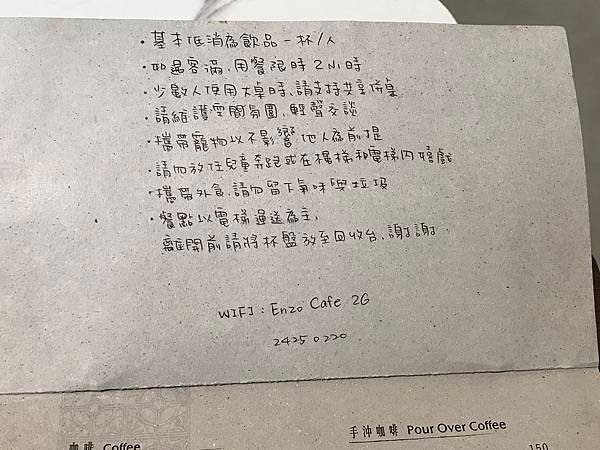 ・基本低消為飲品一杯/人
・如遇客滿,用餐限時2小時
・少數人使用大桌時,請支持共享併桌
・請維護空間氛圍,輕聲交談
・攜帶寵物以不影響他人為前提
・請勿放任兒童奔跑或在樓梯和電梯內嬉戲
・攜帶外食,請勿留下氣味與垃圾
・餐點以電梯運送為主,
離開前請將杯盤放至回收台,謝謝.
WIFI : Enzo Cafe 2G
24250220
手沖咖啡 Pour Over Coffee
咖啡 Coffee
150